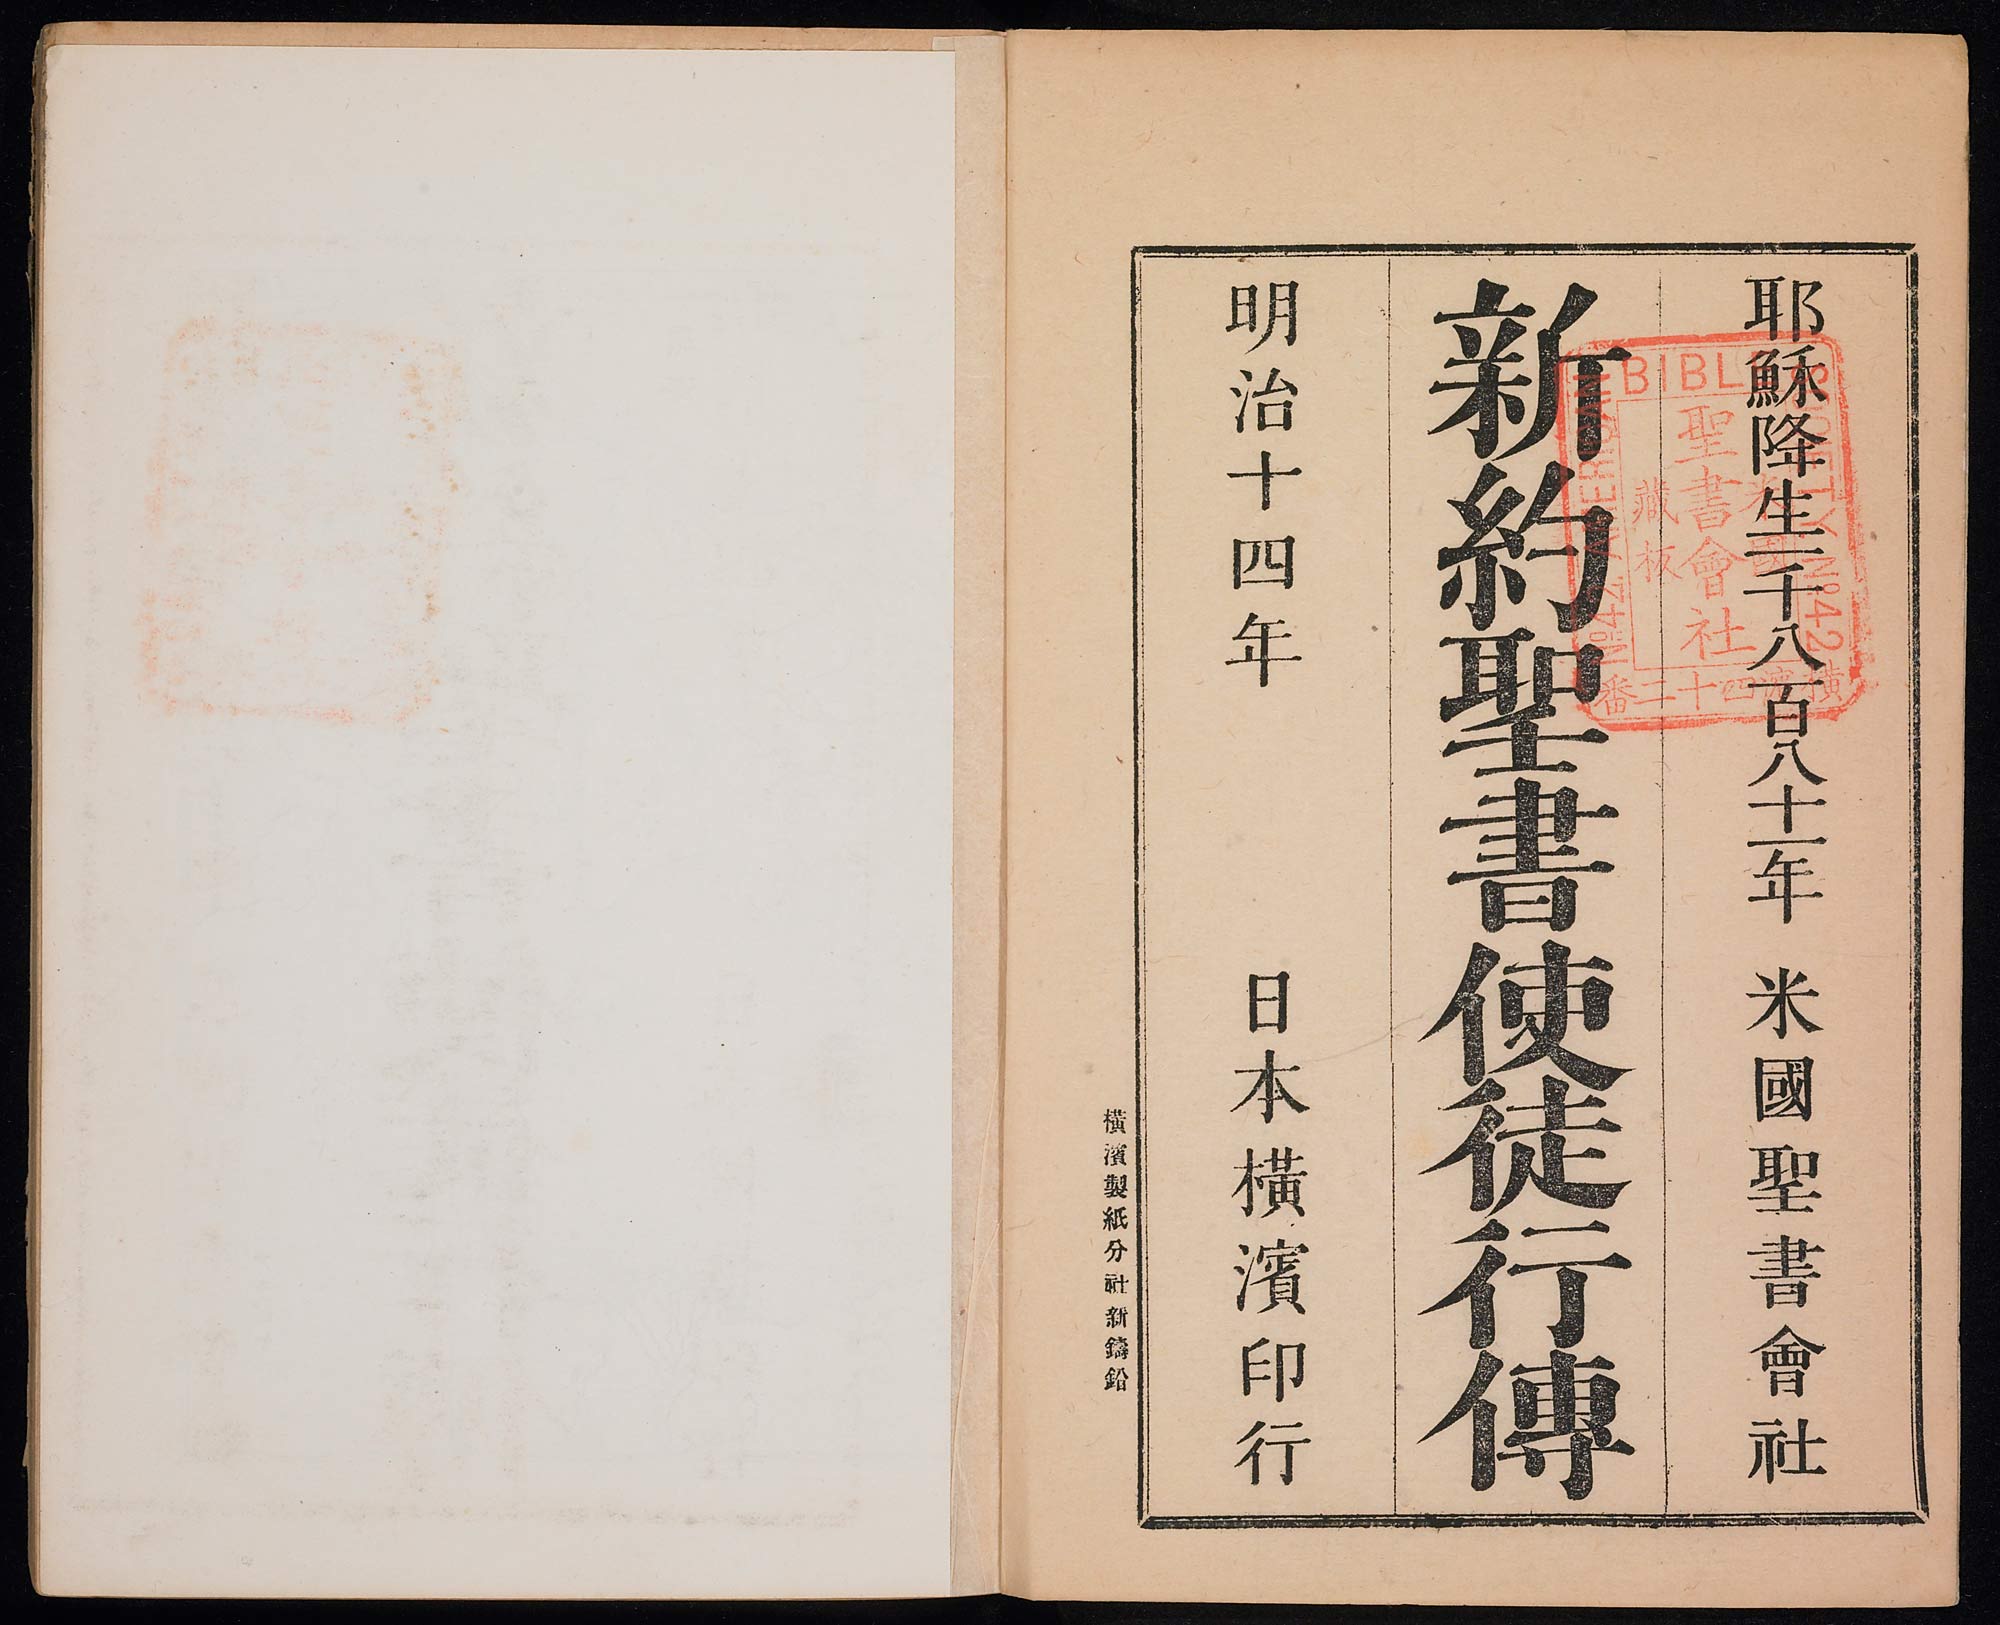 耶穌降生一千八百八十一年 米國聖書會社
新約聖書使徒行傳
明治十四年 日本橫濱印行
橫濱製紙分社新鑄鉛
AMERICAN BIBLE SOCIETY Nº42
Nº42
米國
聖書會社
藏板
橫濱四十二番